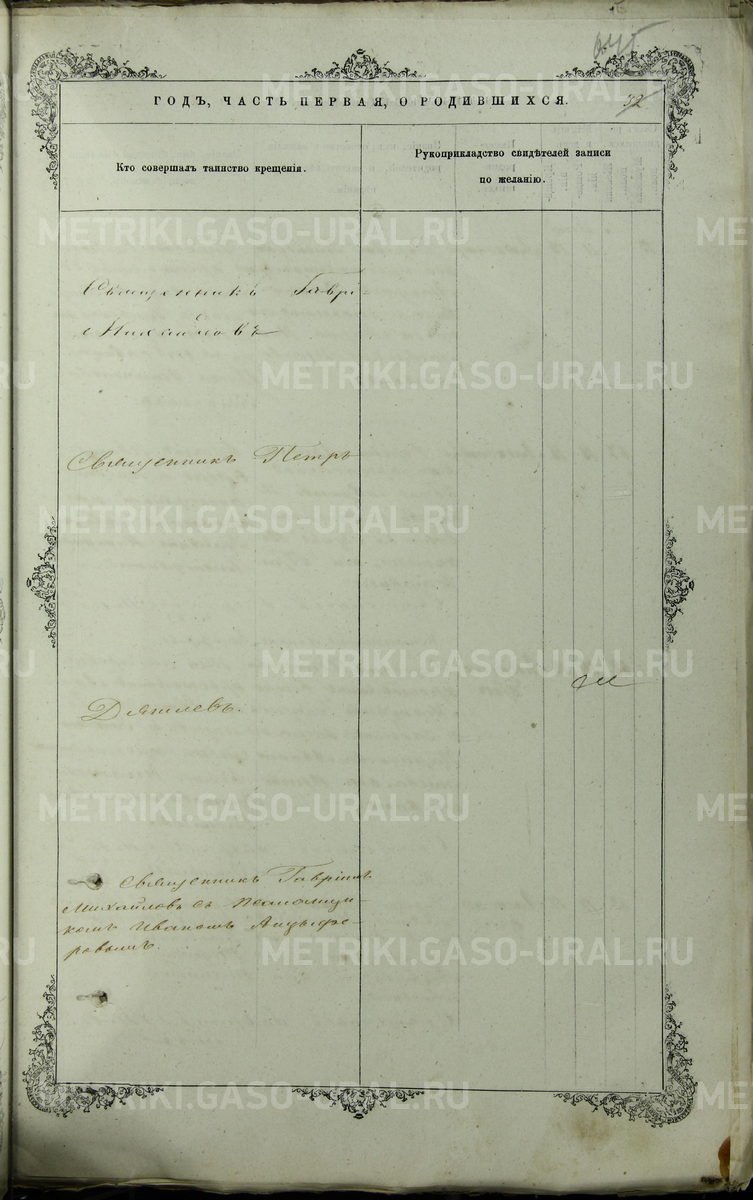 ГОДЪ, ЧАСТЬ ПЕРВАЯ, О РОДИВШИХСЯ.
32
Кто совершалъ таинство крещенія.
Рукоприкладство свидѣтелей записи
по желанію.
Священникъ Гаврі-
Михайловъ
Священникъ Петръ
Дягилевъ.
Священникъ Гавріилъ
Михайловъ съ Псаломщи-
комъ Иваномъ Анцыфе-
ровымъ.
METRIKI.GASO-URAL.RU